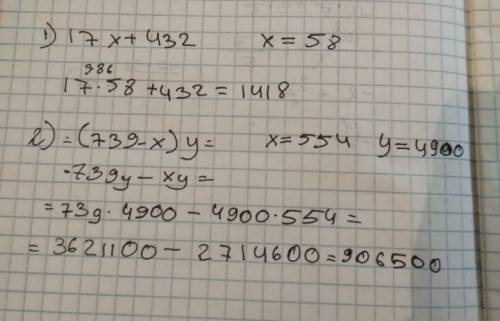 1) 17x+432 x=58
986
17·58+432=1418
2) =(739-x)y= x=554 y=4900
-739y-xy=
=739·4900-4900·554=
=3621100-2714600=906500